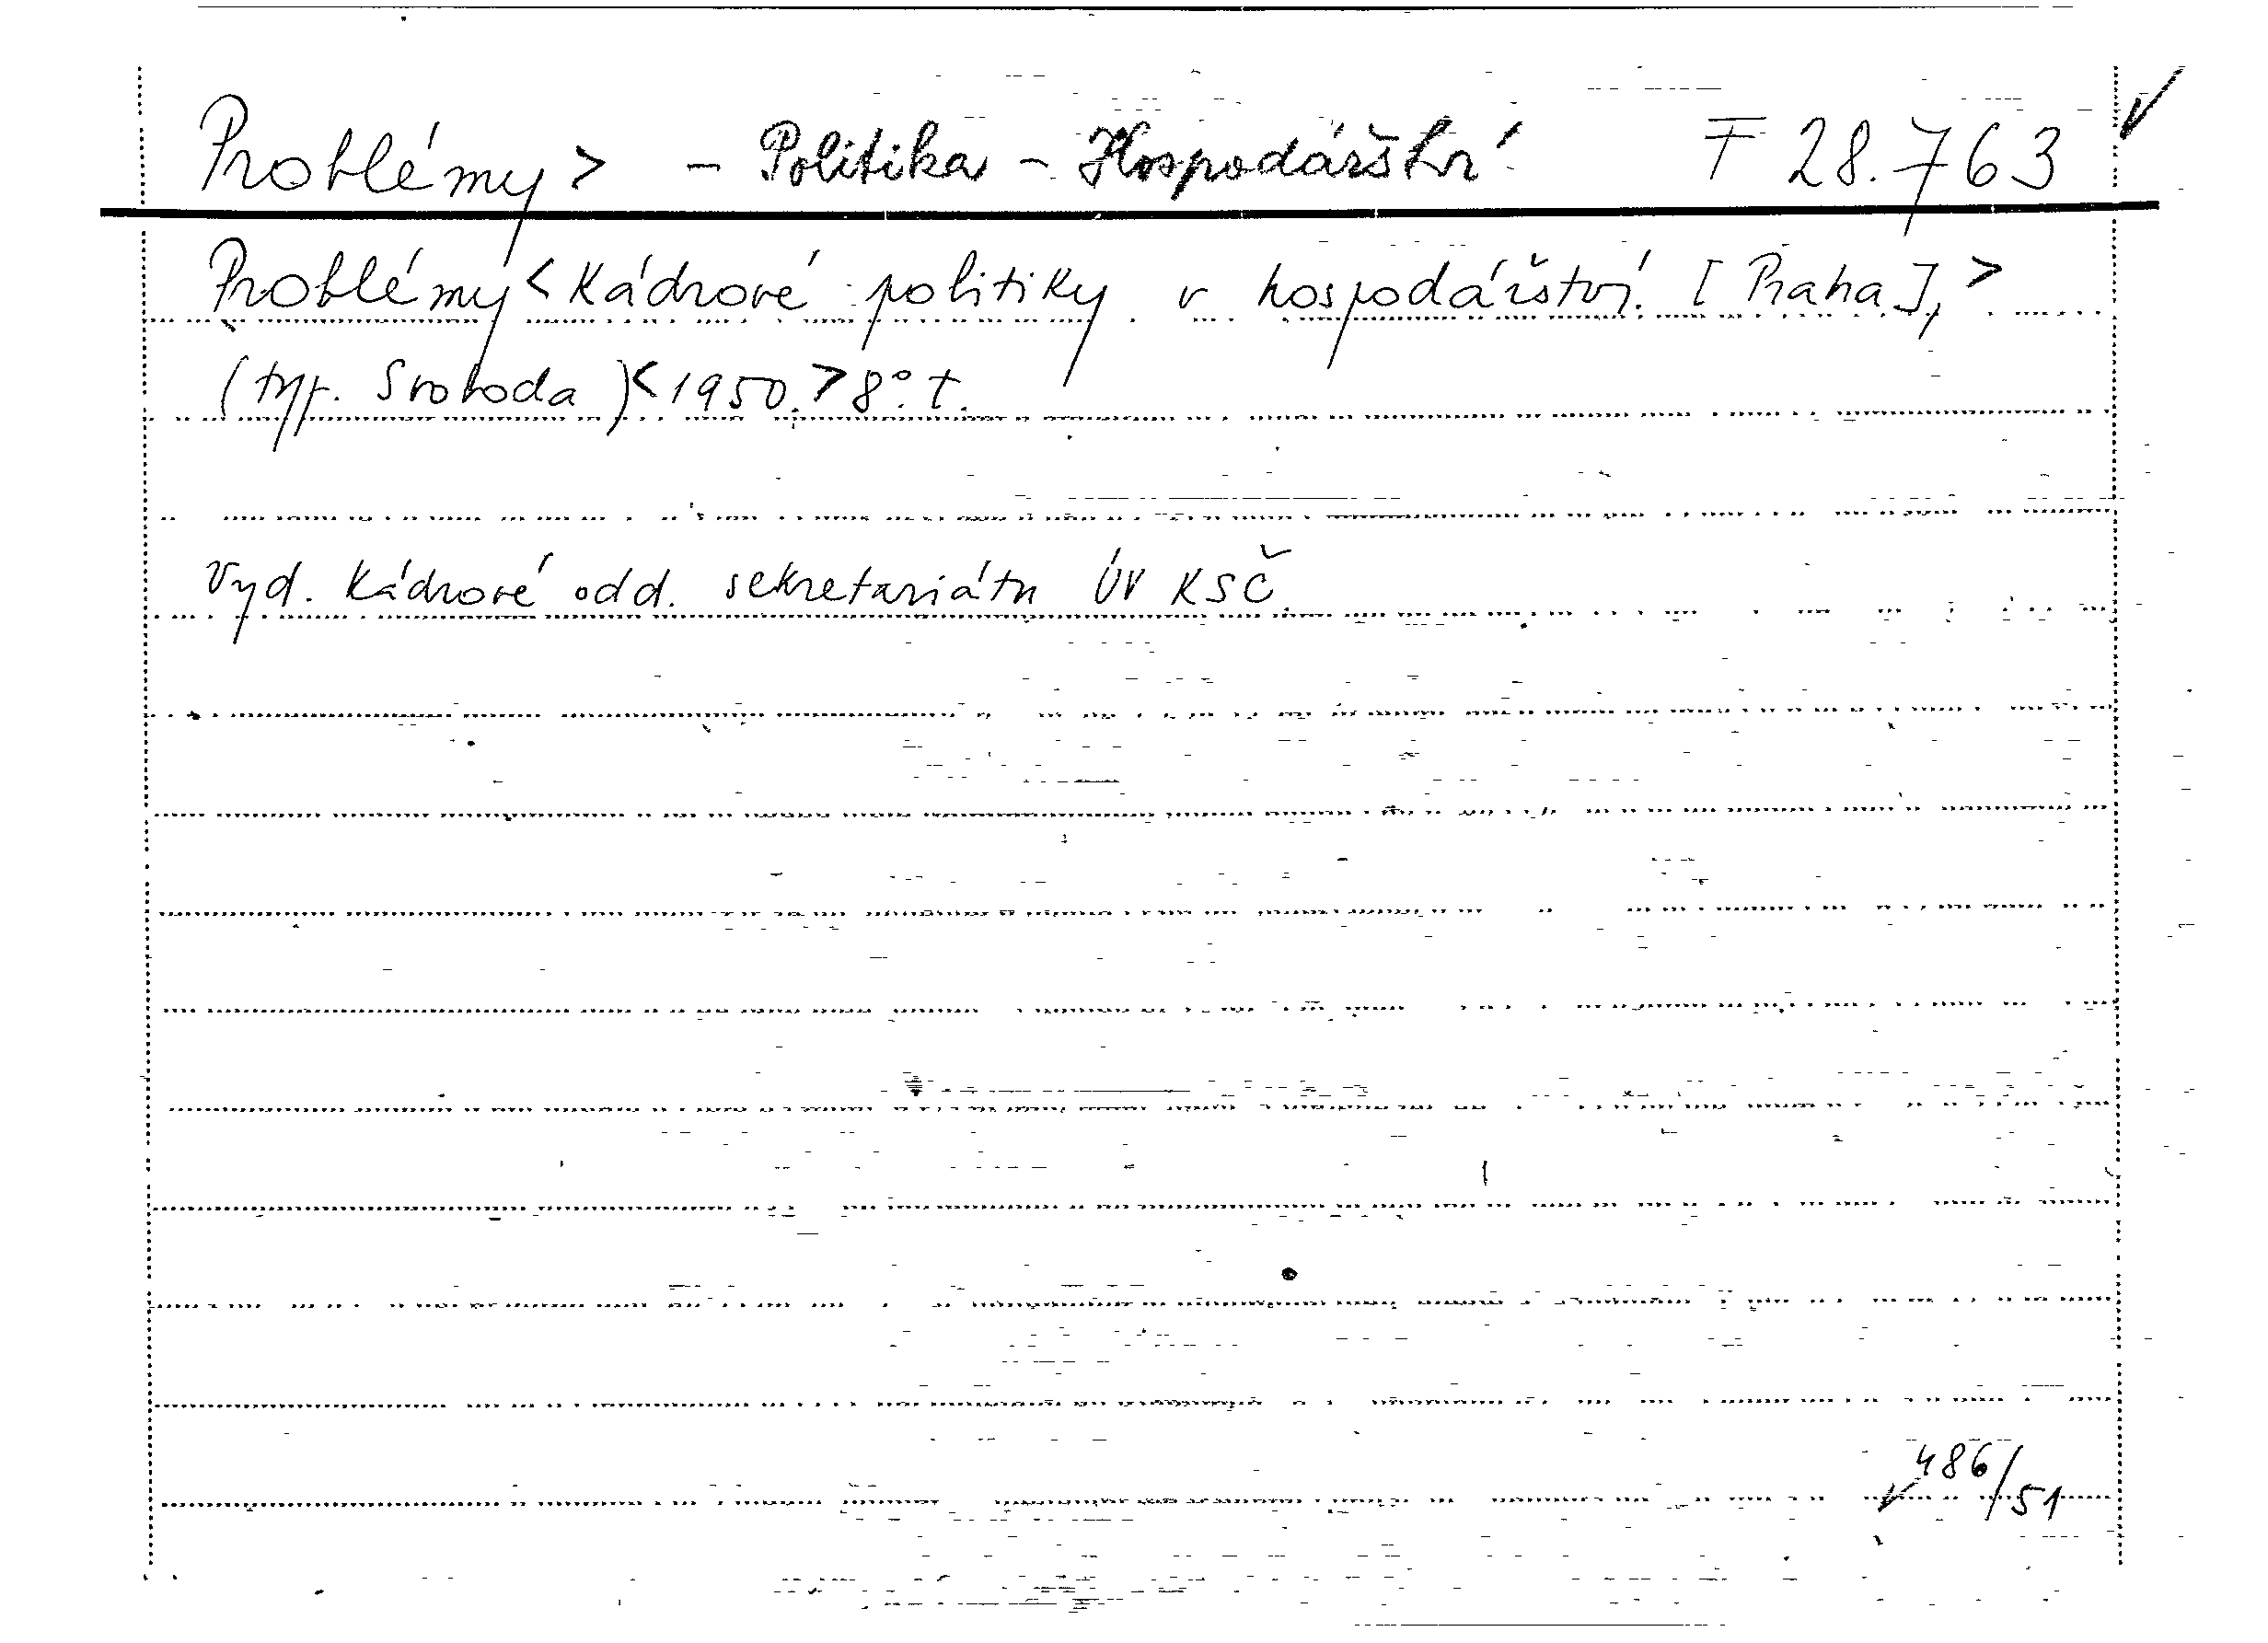 Problémy > - Politika - Hospodářství F 28.763
Problémy < kádrové politiky v hospodářství. [Praha], >
(typ. Svoboda) < 1950. > 8°. t.
Vyd. kádrové odd. sekretariátu ÚV KSČ.
486/51